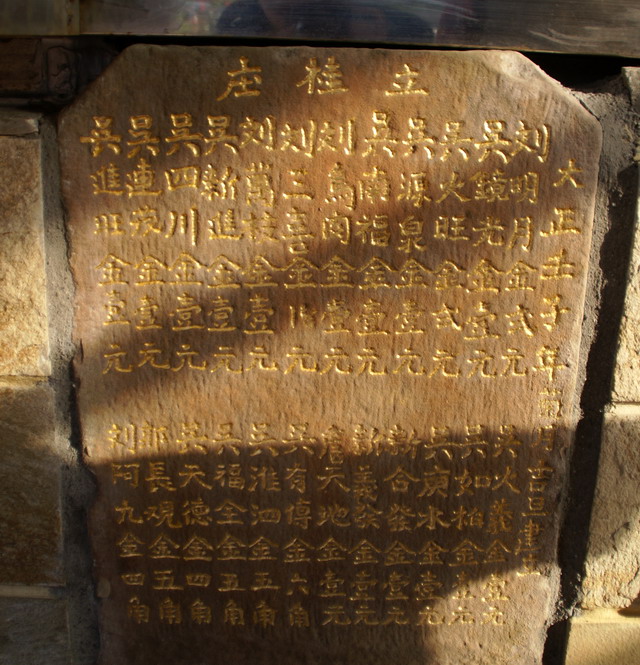 主桂庄
大正壬子年月吉旦
刘明月金弍元
吳鏡光金壹元
吳火旺金弍元
吳源泉金壹元
吳南福金壹元
刘金壹元
刘三喜金元
刘萬枝金壹元
吳新進金壹元
吳四川金壹元
吳連金壹元
吳進旺金壹元
吳火義金壹元
吳如柏金壹元
吳庚水金壹元
新合發金壹元
新義發金壹元
詹天地金壹元
吳有得金六角
吳淮泗金五角
吳福全金五角
吳天德金四角
長观金五角
刘阿九金四角